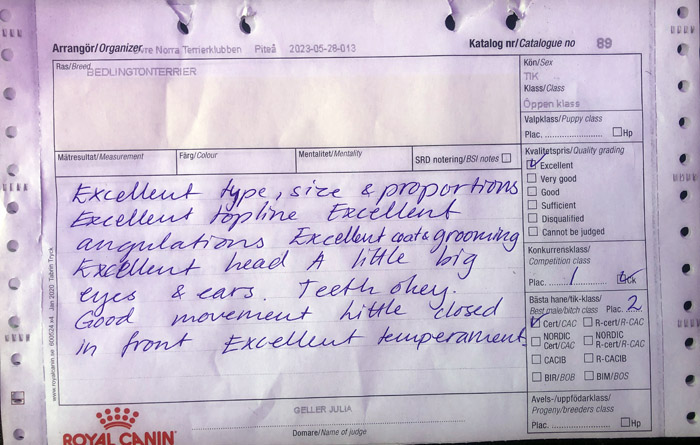 Arrangör/Organizer Övre Norra Terrierklubben Piteå 2023-05-28-013
Katalog nr/Catalogue no 89
Ras/Breed
BEDLINGTONTERRIER
Kön/Sex
TIK
Klass/Class
Öppen klass
Valpklass/Puppy class
Plac. Hp
Mätresultat/Measurement Färg/Colour Mentalitet/Mentality SRD notering/BSI notes
Kvalitetspris/Quality grading
Excellent
Very good
Good
Sufficient
Disqualified
Cannot be judged
Excellent type, size & proportions
Excellent topline Excellent
angulations Excellent coat & grooming
Excellent head A little big
eyes & ears. Teeth okey.
Good movement little closed
in front Excellent temperament
Konkurrensklass/
Competition class
Plac. 1 ck
Bästa hane/tik-klass/
Best male/bitch class Plac. 2
Cert/CAC R-cert/R-CAC
NORDIC Cert/CAC NORDIC R-cert/R-CAC
CACIB R-CACIB
BIR/BOB BIM/BOS
Avels-/uppfödarklass/
Progeny/breeders class
Plac. Hp
GELLER JULIA
Domare/Name of judge
ROYAL CANIN
www.royalcanin.se 600524 x4 Jan 2020 Tabim Tryck